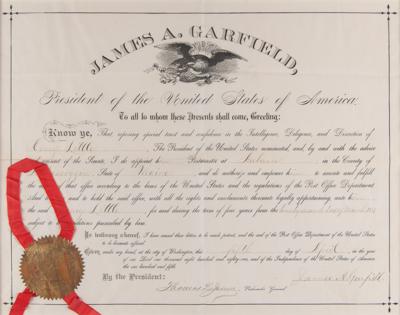 JAMES A. GARFIELD,
President of the United States of America;
To all to whom these Presents shall come, Greeting:
Know ye, That reposing special trust and confidence in the Intelligence, Diligence, and Discretion of
The President of the United States nominated, and, by and with the advice
and consent of the Senate, I do appoint Postmaster at in the County of
State of and do authorize and empower to execute and fulfill
the duties of that office according to the laws of the United States and the regulations of the Post Office Department
And to have and to hold the said office, with all the rights and emoluments thereunto legally appertaining, unto
the said for and during the term of four years from the
subject to the conditions prescribed by law.
In testimony whereof, I have caused these letters to be made patent, and the seal of the Post Office Department of the United States
to be hereunto affixed.
Given, under my hand, at the city of Washington, this day of April in the year
of our Lord one thousand eight hundred and eighty-one, and of the Independence of the United States of America
the one hundred and fifth.
By the President: James A. Garfield
Postmaster General.